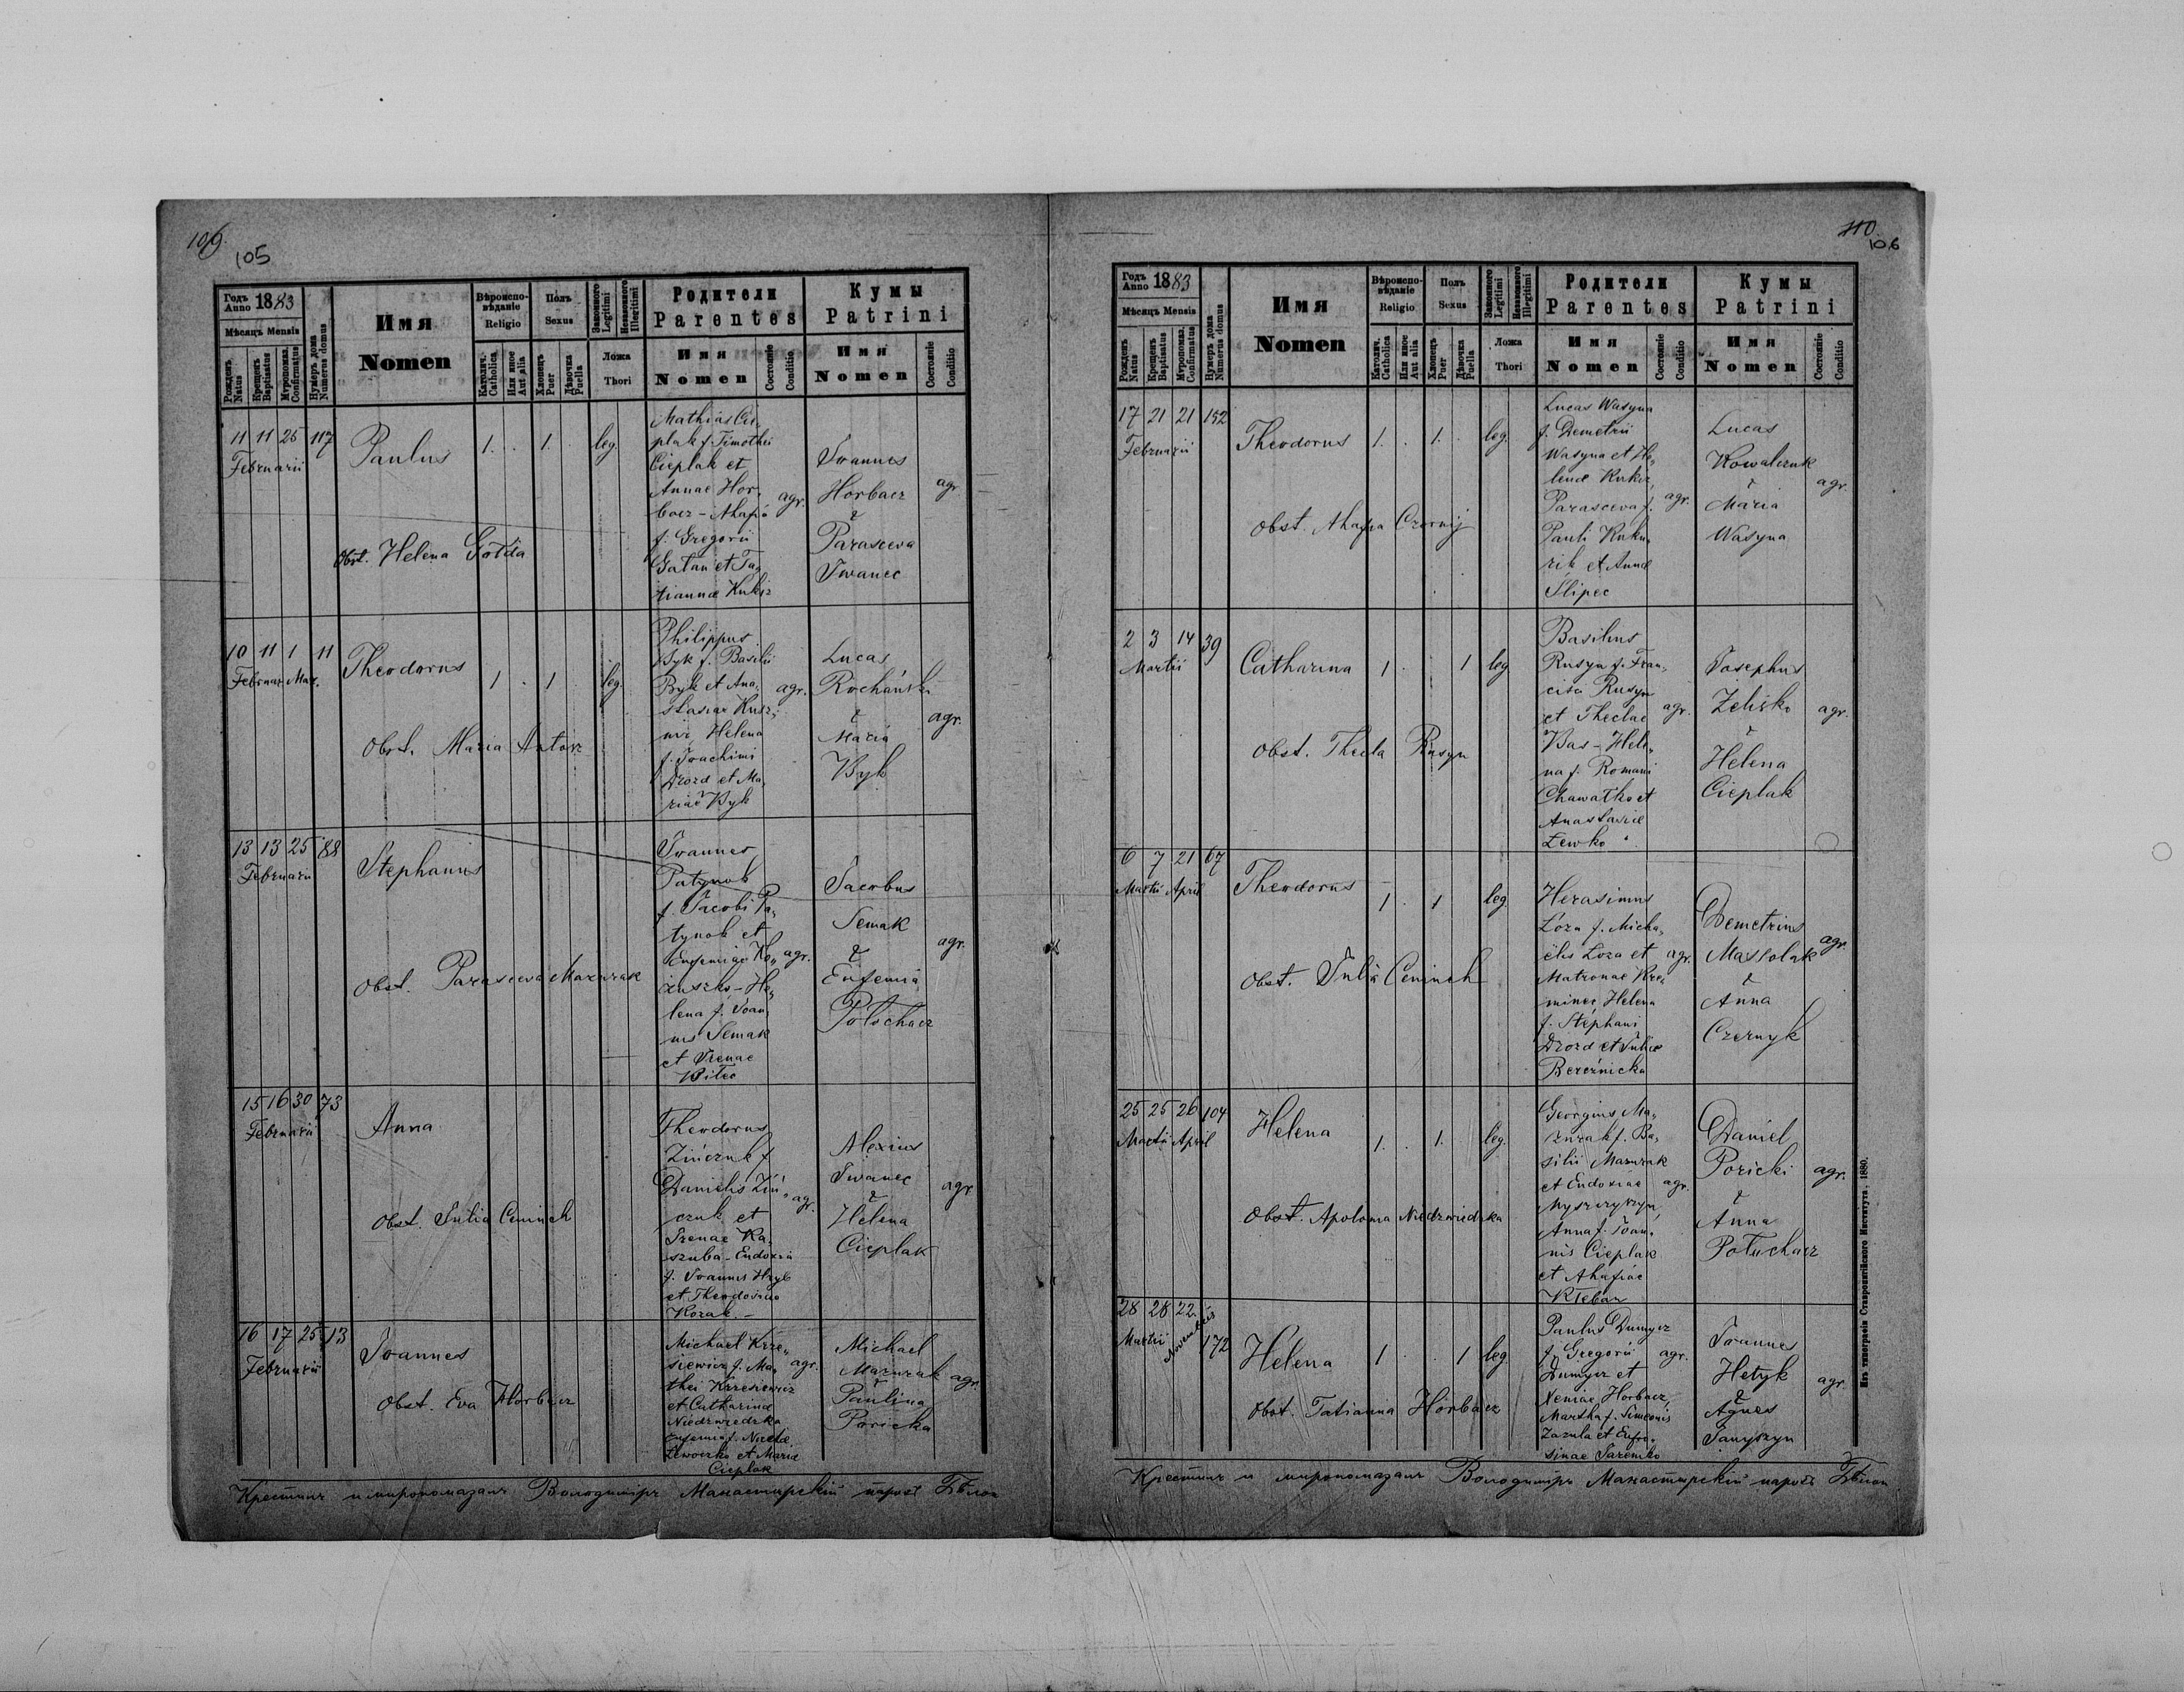 109.
105
Годъ Anno 1883
Мѣсяцъ Mensis
Рожденъ Natus
Крещенъ Baptisatus
Мѵропомаз. Confirmatus
Нумеръ дома Numerus domus
Имя
Nomen
Вѣроисповѣданіе
Religio
Католич. Catholica
Или иное Aut alia
Полъ
Sexus
Хлопець Puer
Дѣвочка Puella
Законного Legitimi
Незаконного Illegitimi
Ложа
Thori
Родители
Parentes
Имя
Nomen
Состояніе
Conditio
Кумы
Patrini
Имя
Nomen
Состояніе
Conditio
11 11 25 117
Februarii
Paulus
1. . 1. . leg.
Obst. Helena Gołda
Mathias Cie
plak f. Timothei
Cieplak et
Annae Hor,
bacz - Ahafia
f. Gregorii
Gatan et Ta,
tianna Kuksz
agr.
Ioannes
Horbacz
et
Parasceva
Iwanec
agr.
10 11 1 11
Februar. Mar.
Theodorus
1 . 1 leg.
Obst. Maria Antosz
Philippus
Byk f. Basilii
Byk et Ana,
stasiae
Helena
f. Joachimi
Drozd et Ma,
riae Byk
agr.
Lucas
Rochański
et
Maria
Byk
agr.
13 13 25 88
Februarii
Stephanus
Obst. Parasceva Mazurak
Ioannes
Patynok
f. Jacobi Pa,
tynok et
Eufemiae Ko,
- He,
lena f. Ioan,
nis Semak
et Irenae
Bilec
agr.
Jacobus
Semak
et
Eufemia
Potuchacz
agr.
15 16 30 73
Februarii
Anna
Obst. Julia Ceninch
Theodorus
Zińczuk f.
Danielis Zin,
czuk et
Irenae Ka,
szuba - Eudoxia
f. Ioannis Hryb
et Theodosiae
Kozak. -
agr.
Alexius
Iwanec
et
Helena
Cieplak
agr.
16 17 25 13
Februarii
Ioannes
Obst. Eva Horbacz
Michael Krze,
siewicz f. Ma,
thei Krzesiewicz
et Catharinae
Niedzwiedzka
Eufemia f. Nicetae
Lewoczko et Maria
Cieplak
agr.
Michael
Mazurak
et
Paulina
Poricka
agr.
Крестилъ и миропомазалъ Володимiръ Манастырскiй парохъ
110.
106
Годъ Anno 1883
Мѣсяцъ Mensis
Рожденъ Natus
Крещенъ Baptisatus
Мѵропомаз. Confirmatus
Нумеръ дома Numerus domus
Имя
Nomen
Вѣроисповѣданіе
Religio
Католич. Catholica
Или иное Aut alia
Полъ
Sexus
Хлопець Puer
Дѣвочка Puella
Законного Legitimi
Незаконного Illegitimi
Ложа
Thori
Родители
Parentes
Имя
Nomen
Состояніе
Conditio
Кумы
Patrini
Имя
Nomen
Состояніе
Conditio
17 21 21 152
Februarii
Theodorus
1. . 1. . leg.
Obst. Ahafia Czornij
Lucas Wasyna
f. Demetrii
Wasyna et He,
lenae Kuksz,
Parasceva f.
Pauli Kuku,
rik et Annae
Slipec
agr.
Lucas
Kowalczuk
et
Maria
Wasyna
agr.
2 3 14 39
Martii
Catharina
1 . 1 leg
Obst. Thecla Rusyn
Basilius
Rusyn f. Fran,
cisci Rusyn
et Theclae
Bas - Hele,
na f. Romani
Chawałko et
Anastasiae
Lewko
agr.
Josephus
Zelisko
et
Helena
Cieplak
agr.
6 7 21 67
Martii April
Theodorus
1 . 1 leg.
Obst. Julia Ceninch
Herasimus
Łoza f. Micha,
elis Łoza et
Matronae Kre,
minec Helena
f. Stephani
Drozd et Juliae
Bereźnicka
agr.
Demetrius
et
Anna
Czernyk
agr.
25 25 26 104
Martii April
Helena
1. . 1. leg.
Obst. Apolonia Niedzwiedzka
Georgius Ma,
zurak f. Ba,
silii Mazurak
et Eudoxiae
Myszczyszyn,
Anna f. Ioan,
nis Cieplak
et Ahafiae
Kleban
agr.
Daniel
Poricki
et
Anna
Potuchacz
agr.
28 28 22 172
Martii Novembris
Helena
1 . . 1 leg.
Obst. Tatianna Horbacz
Paulus Dumycz
f. Gregorii
Dumycz et
Xeniae Horbacz,
Martha f. Simeonis
Zazula et Eufro,
sinae Jaremko
agr.
Ioannes
Hetyk
et
Agnes
Janyszyn
agr.
Изъ типографіи Ставропигійского Института, 1880.
Крестилъ и миропомазалъ Володимiръ Манастырскiй парохъ